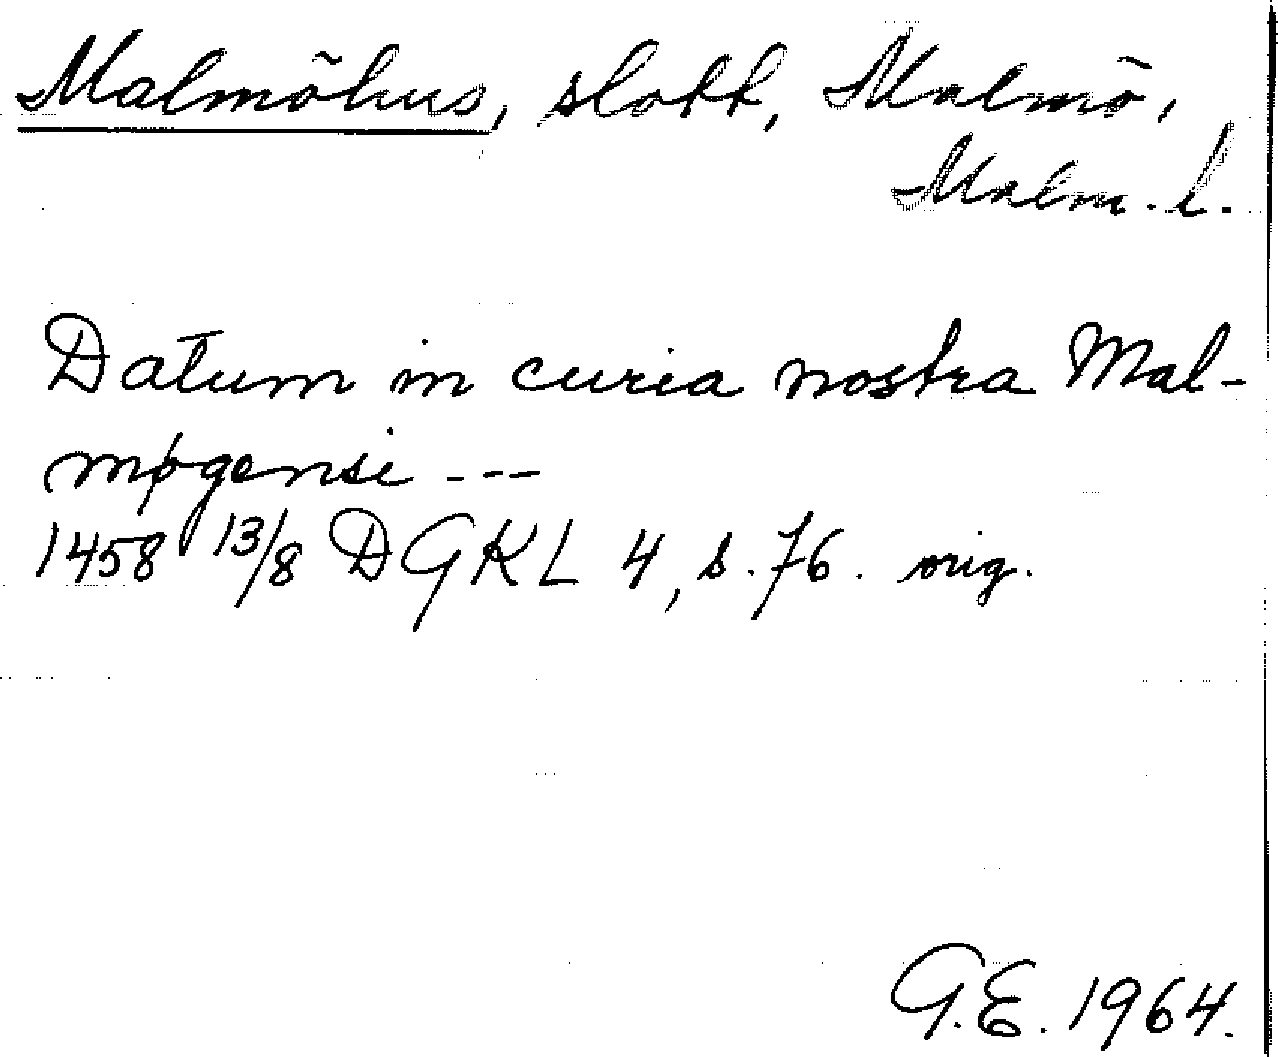 Malmöhus, slott, Malmö,
Malm. l.
Datum in curia nostra Mal-
møgensi ---
1458 13/8 DGKL 4, s. 76. orig.
G.E. 1964.